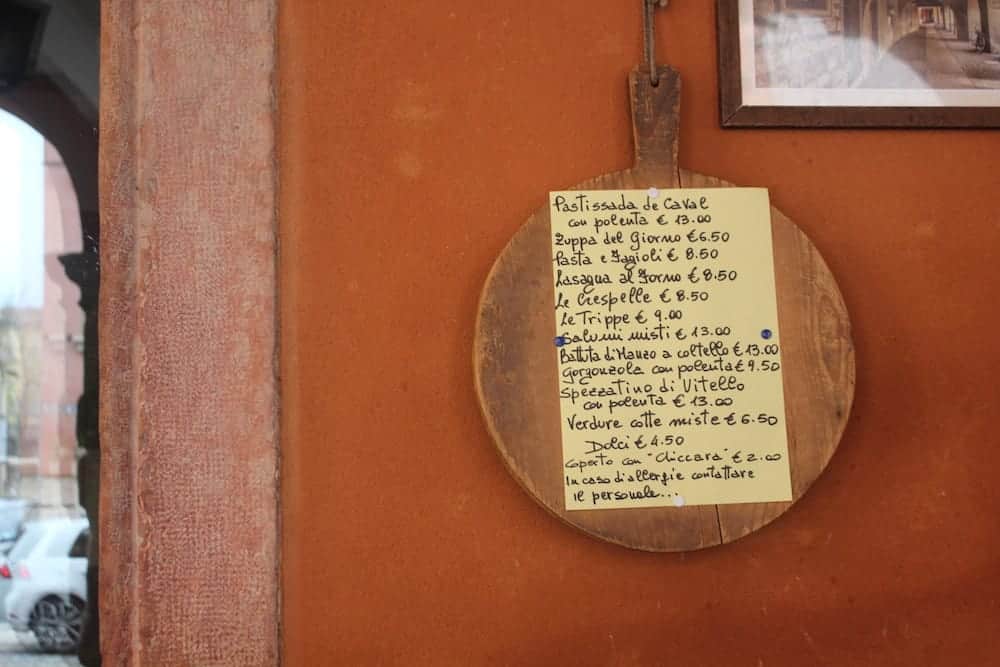 Pastissada de Caval
con polenta € 13.00
Zuppa del Giorno €6.50
Pasta e Fagioli € 8.50
Lasagna al Forno € 8.50
Le Crespelle € 8.50
Le Trippe € 9.00
Salumi misti € 13.00
Battuta di Manzo a coltello € 13.00
Gorgonzola con polenta € 9.50
Spezzatino di Vitello
con polenta € 13.00
Verdure cotte miste € 6.50
Dolci € 4.50
Coperto con "Cliccara" € 2.00
In caso di allergie contattare
il personale...